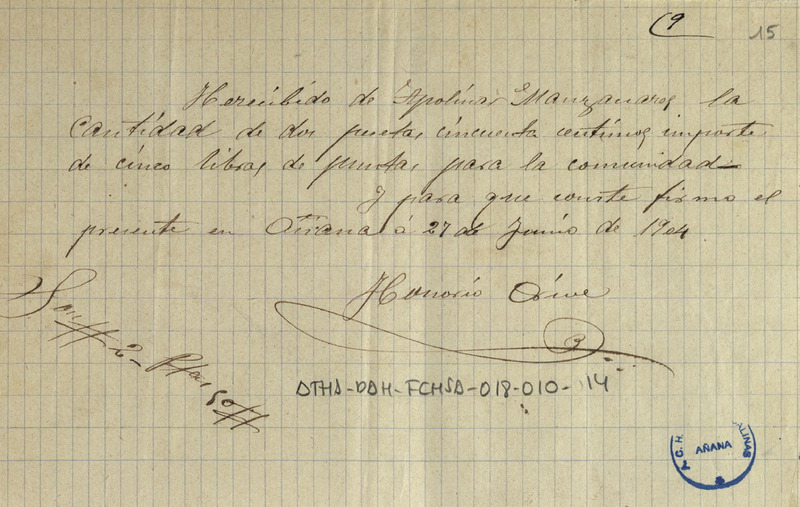 9
15
Hereicibido de Apolinar Manzanares la
Cantidad de dos pesetas cincuenta centimos importe
de cinco libras de puntas para la comunidad
Y para que conste firmo el
presente en Añana á 27 de Junio de 1904
Honorio Orive
Son # 2- Ptas 50 #
DTHA-DAH-FCHSA-018-010-14
C. H. LINAS
AÑANA